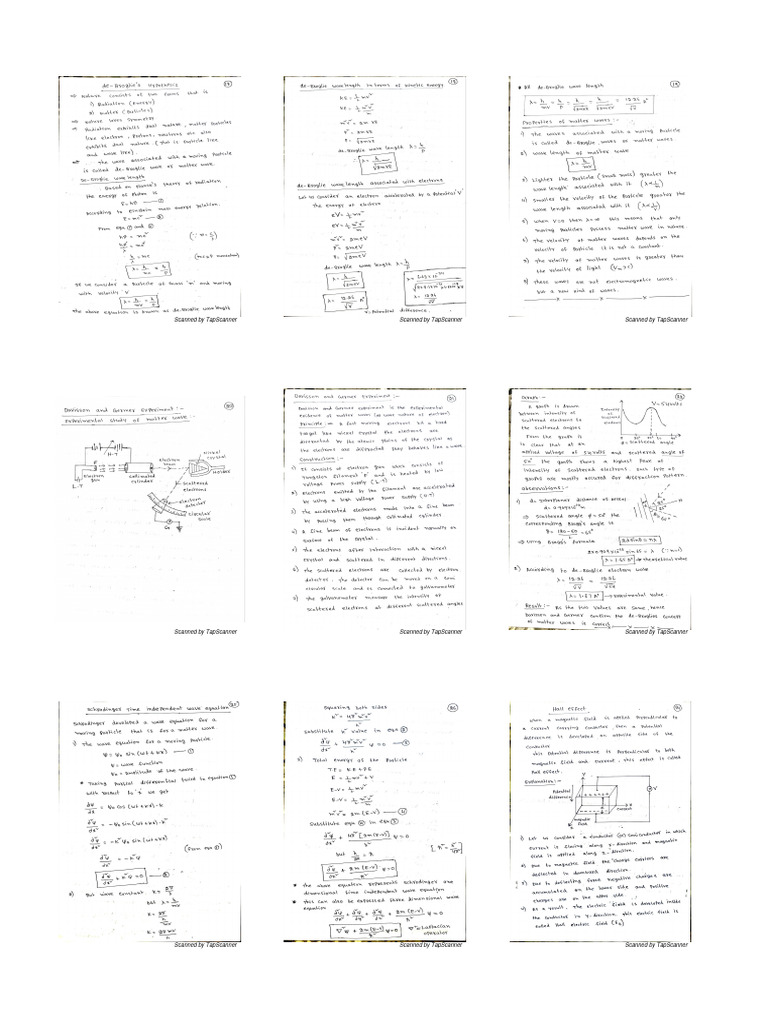 de-Broglie's Hypothesis
⇒ Nature consists of two forms that is
i) Radiation (Energy)
ii) Matter (Particles)
⇒ Nature loves symmetry
⇒ Radiation exhibits dual nature, matter particles
like electron, protons, neutrons etc also
exhibits dual nature. (that is particle like
and wave like).
⇒ The wave associated with a moving particle
is called de-Broglie wave or matter wave.
de-Broglie wave length
Based on Planck's theory of Radiation
the energy of photon is
E = hν —①
According to Einstein mass energy relation
E = mc² —②
From eqn ① and ②
hν = mc²
(∵ ν = c/λ)
hc/λ = mc²
h/λ = mc
(mc = P momentum)
λ = h/mc = h/P
If we consider a particle of mass 'm' and moving
with velocity 'V'
λ = h/mv = h/P
The above equation is known as de-Broglie wave length
Scanned by TapScanner
19
de-Broglie wave length in terms of kinetic energy
KE = ½mv²
m²v² = 2mKE
de-Broglie wave length λ = h/P
de-Broglie wave length associated with electrons
Let us consider an electron accelerated by a potential 'V'
The energy of electron
eV = ½mv²
m²v² = 2meV
P = √2meV
de-Broglie wave length λ = h/P
λ = h/√2meV
λ = 12.26/√V A°
V = Potential difference.
Scanned by TapScanner
19
de-Broglie wave length
λ = h/mv = h/P = h/√2mKE = h/√2meV = 12.26/√V A°
Properties of matter waves :-
1) The waves associated with a moving particle
is called de-Broglie waves or matter waves.
2) Wave length of matter wave
λ = h/mv
3) Lighter the particle (small mass) greater the
wave length associated with it (λ ∝ 1/m)
4) Smaller the velocity of the particle greater the
wave length associated with it (λ ∝ 1/v)
5) When v=0 then λ=∞ this means that only
moving particles possess matter wave in nature.
6) The velocity of matter waves depends on the
velocity of particle it is not a constant.
7) The velocity of matter waves is greater than
the velocity of light
8) These waves are not electromagnetic waves.
but a new kind of waves.
Scanned by TapScanner
20
Davisson and Germer Experiment :-
Experimental study of matter wave :-
H-T
L-T
Electron gun
Collimated cylinder
Electron beam
Nickel crystal
Holder
Scattered electrons
Electron detector
Circular scale
G
Scanned by TapScanner
21
Davisson and Germer Experiment :-
Davisson and Germer experiment is the experimental
evidence of matter waves (or wave nature of electron).
Principle :- A fast moving electrons hit a hard
target like nickel crystal the electrons are
diffracted by the atomic planes of the crystal as
the electrons are diffracted they behaves like a wave
Construction :-
1) It consists of electron gun which consists of
Tungsten filament 'F' and is heated by low
voltage power supply (L-T)
2) Electrons emitted by the filament are accelerated
by using a high voltage power supply (H-T)
3) The accelerated electrons made into a fine beam
by passing them through collimated cylinder
4) A fine beam of electrons is incident normally on
surface of the crystal.
5) The electrons after interaction with a nickel
crystal and scattered in different directions.
6) The scattered electrons are collected by electron
detector. The detector can be moved on a semi
circular scale and is connected to galvanometer
7) The galvanometer measures the intensity of
scattered electrons at different scattered angles
Scanned by TapScanner
22
Graph :-
A graph is drawn
between intensity of
scattered electrons to
the scattered angles
From the graph it
is clear that at an
V = 54 volts
Intensity of scattered electron
φ = Scattered angle
applied voltage of 54 volts and scattered angle of
50° the graph shows a highest peak of
intensity of scattered electrons
Observations :-
1) d = interplanar distance of crystal
⇒ Scattered angle φ = 50° the
corresponding Bragg's angle is
θ = (180-50)/2 = 65°
⇒ Using Bragg's formula
2d sinθ = nλ
(∵ n=1)
λ = 1.65 A° → theoretical value
2) According to de-Broglie electron wave
λ = 12.26/√V = 12.26/√54
λ = 1.67 A° → experimental value
Result :- As the two values are same, hence
Davisson and Germer confirm the de-Broglies concept
of matter waves is correct.
Scanned by TapScanner
Schrodinger time independent wave equation
Schrodinger developed a wave equation for a
moving particle that is for a matter wave.
1) The wave equation for a moving particle
ψ = ψ₀ sin(ωt + kx) —①
ψ = wave function
ψ₀ = amplitude of the wave
* Taking partial differential twice in equation ①
with respect to 'x' we get
dψ/dx = ψ₀ cos(ωt + kx)·k
d²ψ/dx² = -ψ₀ sin(ωt + kx)·k²
d²ψ/dx² = -k²ψ₀ sin(ωt + kx)
d²ψ/dx² = -k²ψ
(From eqn ①)
d²ψ/dx² + k²ψ = 0 —②
2) But wave constant k = 2π/λ
but λ = h/mv
k = 2πmv/h
Scanned by TapScanner
26
Squaring both sides
k² = 4π²m²v²/h²
Substitute k² value in eqn ②
d²ψ/dx² + 4π²m²v²/h² ψ = 0 —③
3) Total energy of the particle
T.E = K.E + P.E
E = ½mv² + V
E-V = ½mv²
m²v² = 2m(E-V) —④
Substitute eqn ④ in eqn ③
d²ψ/dx² + 4π²[2m(E-V)]/h² ψ = 0
d²ψ/dx² + 2m(E-V)/ħ² ψ = 0
* The above equation represents Schrodinger one
dimensional time independent wave equation
* This can also be expressed three dimensional wave
equation
d²ψ/dx² + d²ψ/dy² + d²ψ/dz² + 2m(E-V)/ħ² ψ = 0
∇²ψ + 2m(E-V)/ħ² ψ = 0
∇² = Laplacian operator
Scanned by TapScanner
Hall effect
When a magnetic field is applied perpendicular to
a current carrying conductor then a potential
difference is developed on opposite side of the
conductor
This potential difference is perpendicular to both
magnetic field and current, this effect is called
Hall effect.
Explanation :-
Potential difference
Magnetic field
Current
V
1) Let us consider a conductor (or) semiconductor in which
current is flowing along x-direction and magnetic
field is applied along z-direction.
2) Due to magnetic field the charge carriers are
deflected in downward direction.
3) Due to deflecting force negative charges are
accumulated on the lower side and positive
charges are on the upper side.
4) As a result, the electric field is developed inside
the conductor in y-direction this electric field is
called Hall electric field (E_H)
Scanned by TapScanner